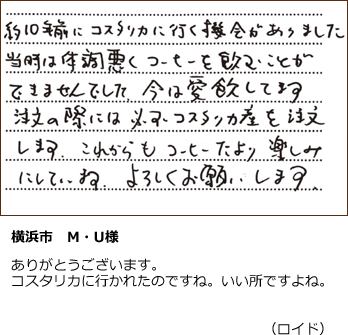 約10年前にコスタリカに行く機会がありました
当時は体調悪くコーヒーを飲むことが
できませんでした。今は愛飲してます
注文の際には必ずコスタリカ産を注文
します。これからもコーヒーたより楽しみ
にしていますね。よろしくお願いします。
横浜市 M・U様
ありがとうございます。
コスタリカに行かれたのですね。いい所ですよね。
（ロイド）